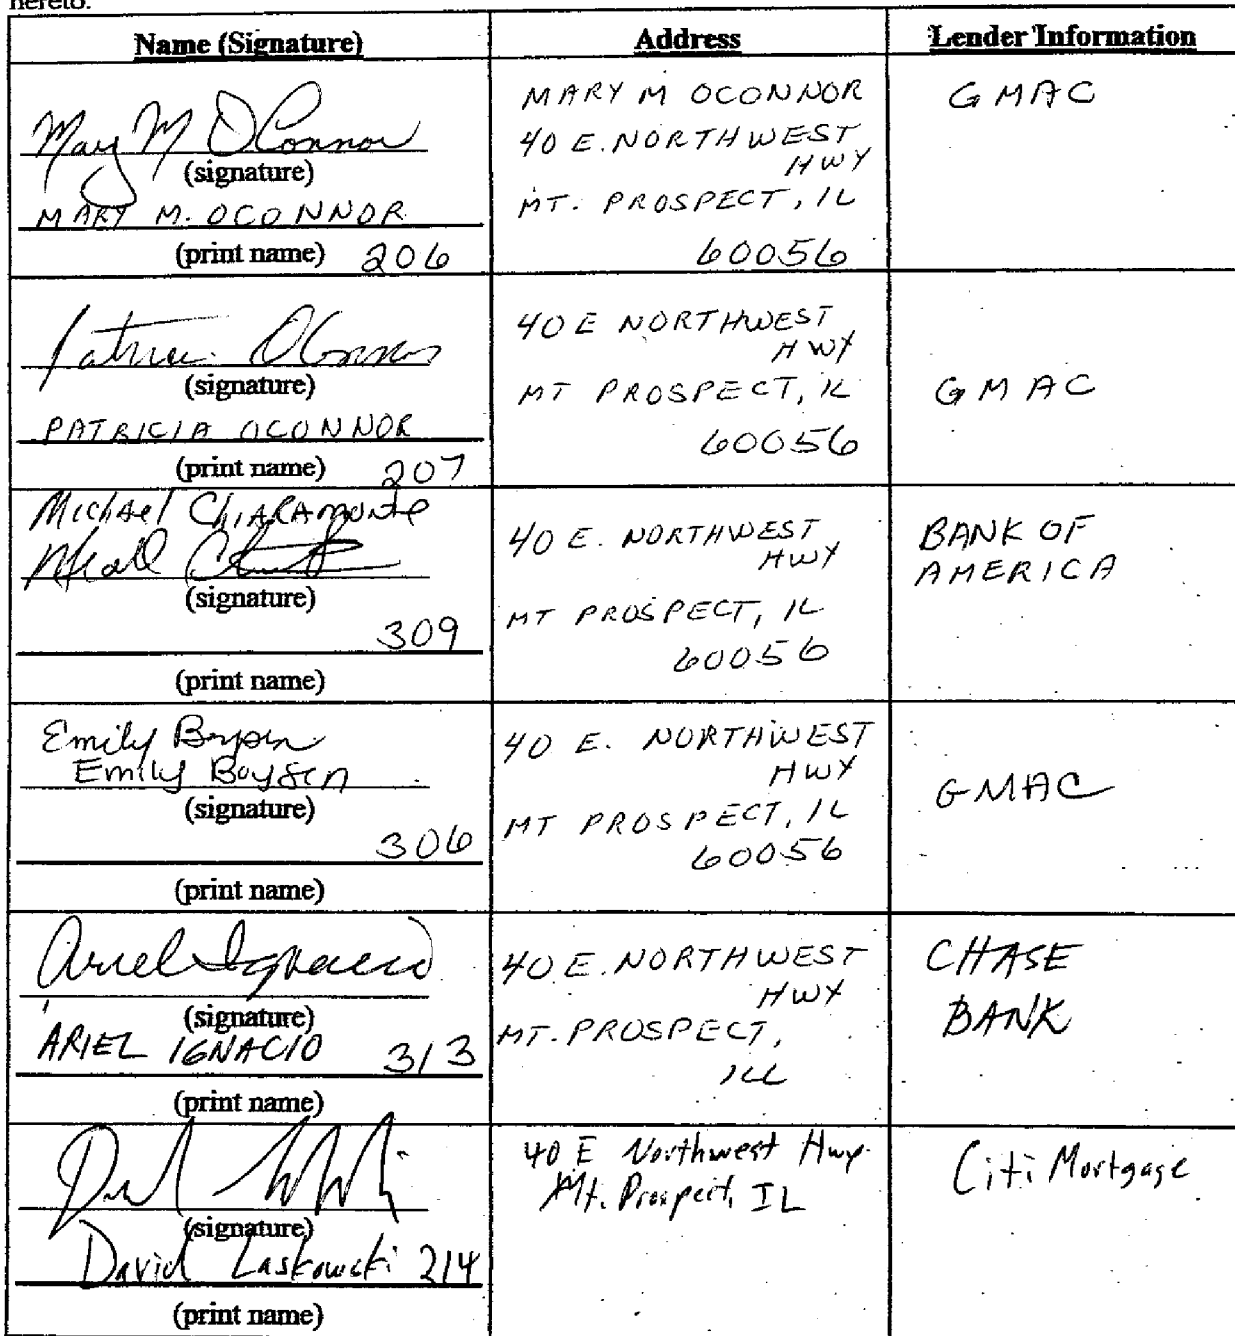 hereto.
Name (Signature) Address Lender Information
Mary M OConnor
(signature)
MARY M. OCONNOR
(print name) 206
MARY M OCONNOR
40 E. NORTHWEST
HWY
MT. PROSPECT, IL
60056
GMAC
Patricia OConnor
(signature)
PATRICIA OCONNOR
(print name) 207
40 E NORTHWEST
HWY
MT PROSPECT, IL
60056
GMAC
Michael Chiaramonte
(signature)
309
(print name)
40 E. NORTHWEST
HWY
MT PROSPECT, IL
60056
BANK OF
AMERICA
Emily Boysen
Emily Boysen
(signature)
306
(print name)
40 E. NORTHWEST
HWY
MT PROSPECT, IL
60056
GMAC
Ariel Ignacio
(signature)
ARIEL IGNACIO 313
(print name)
40 E. NORTHWEST
HWY
MT. PROSPECT,
ILL
CHASE
BANK
(signature)
David Laskowski 214
(print name)
40 E Northwest Hwy.
Mt. Prospect, IL
Citi Mortgage